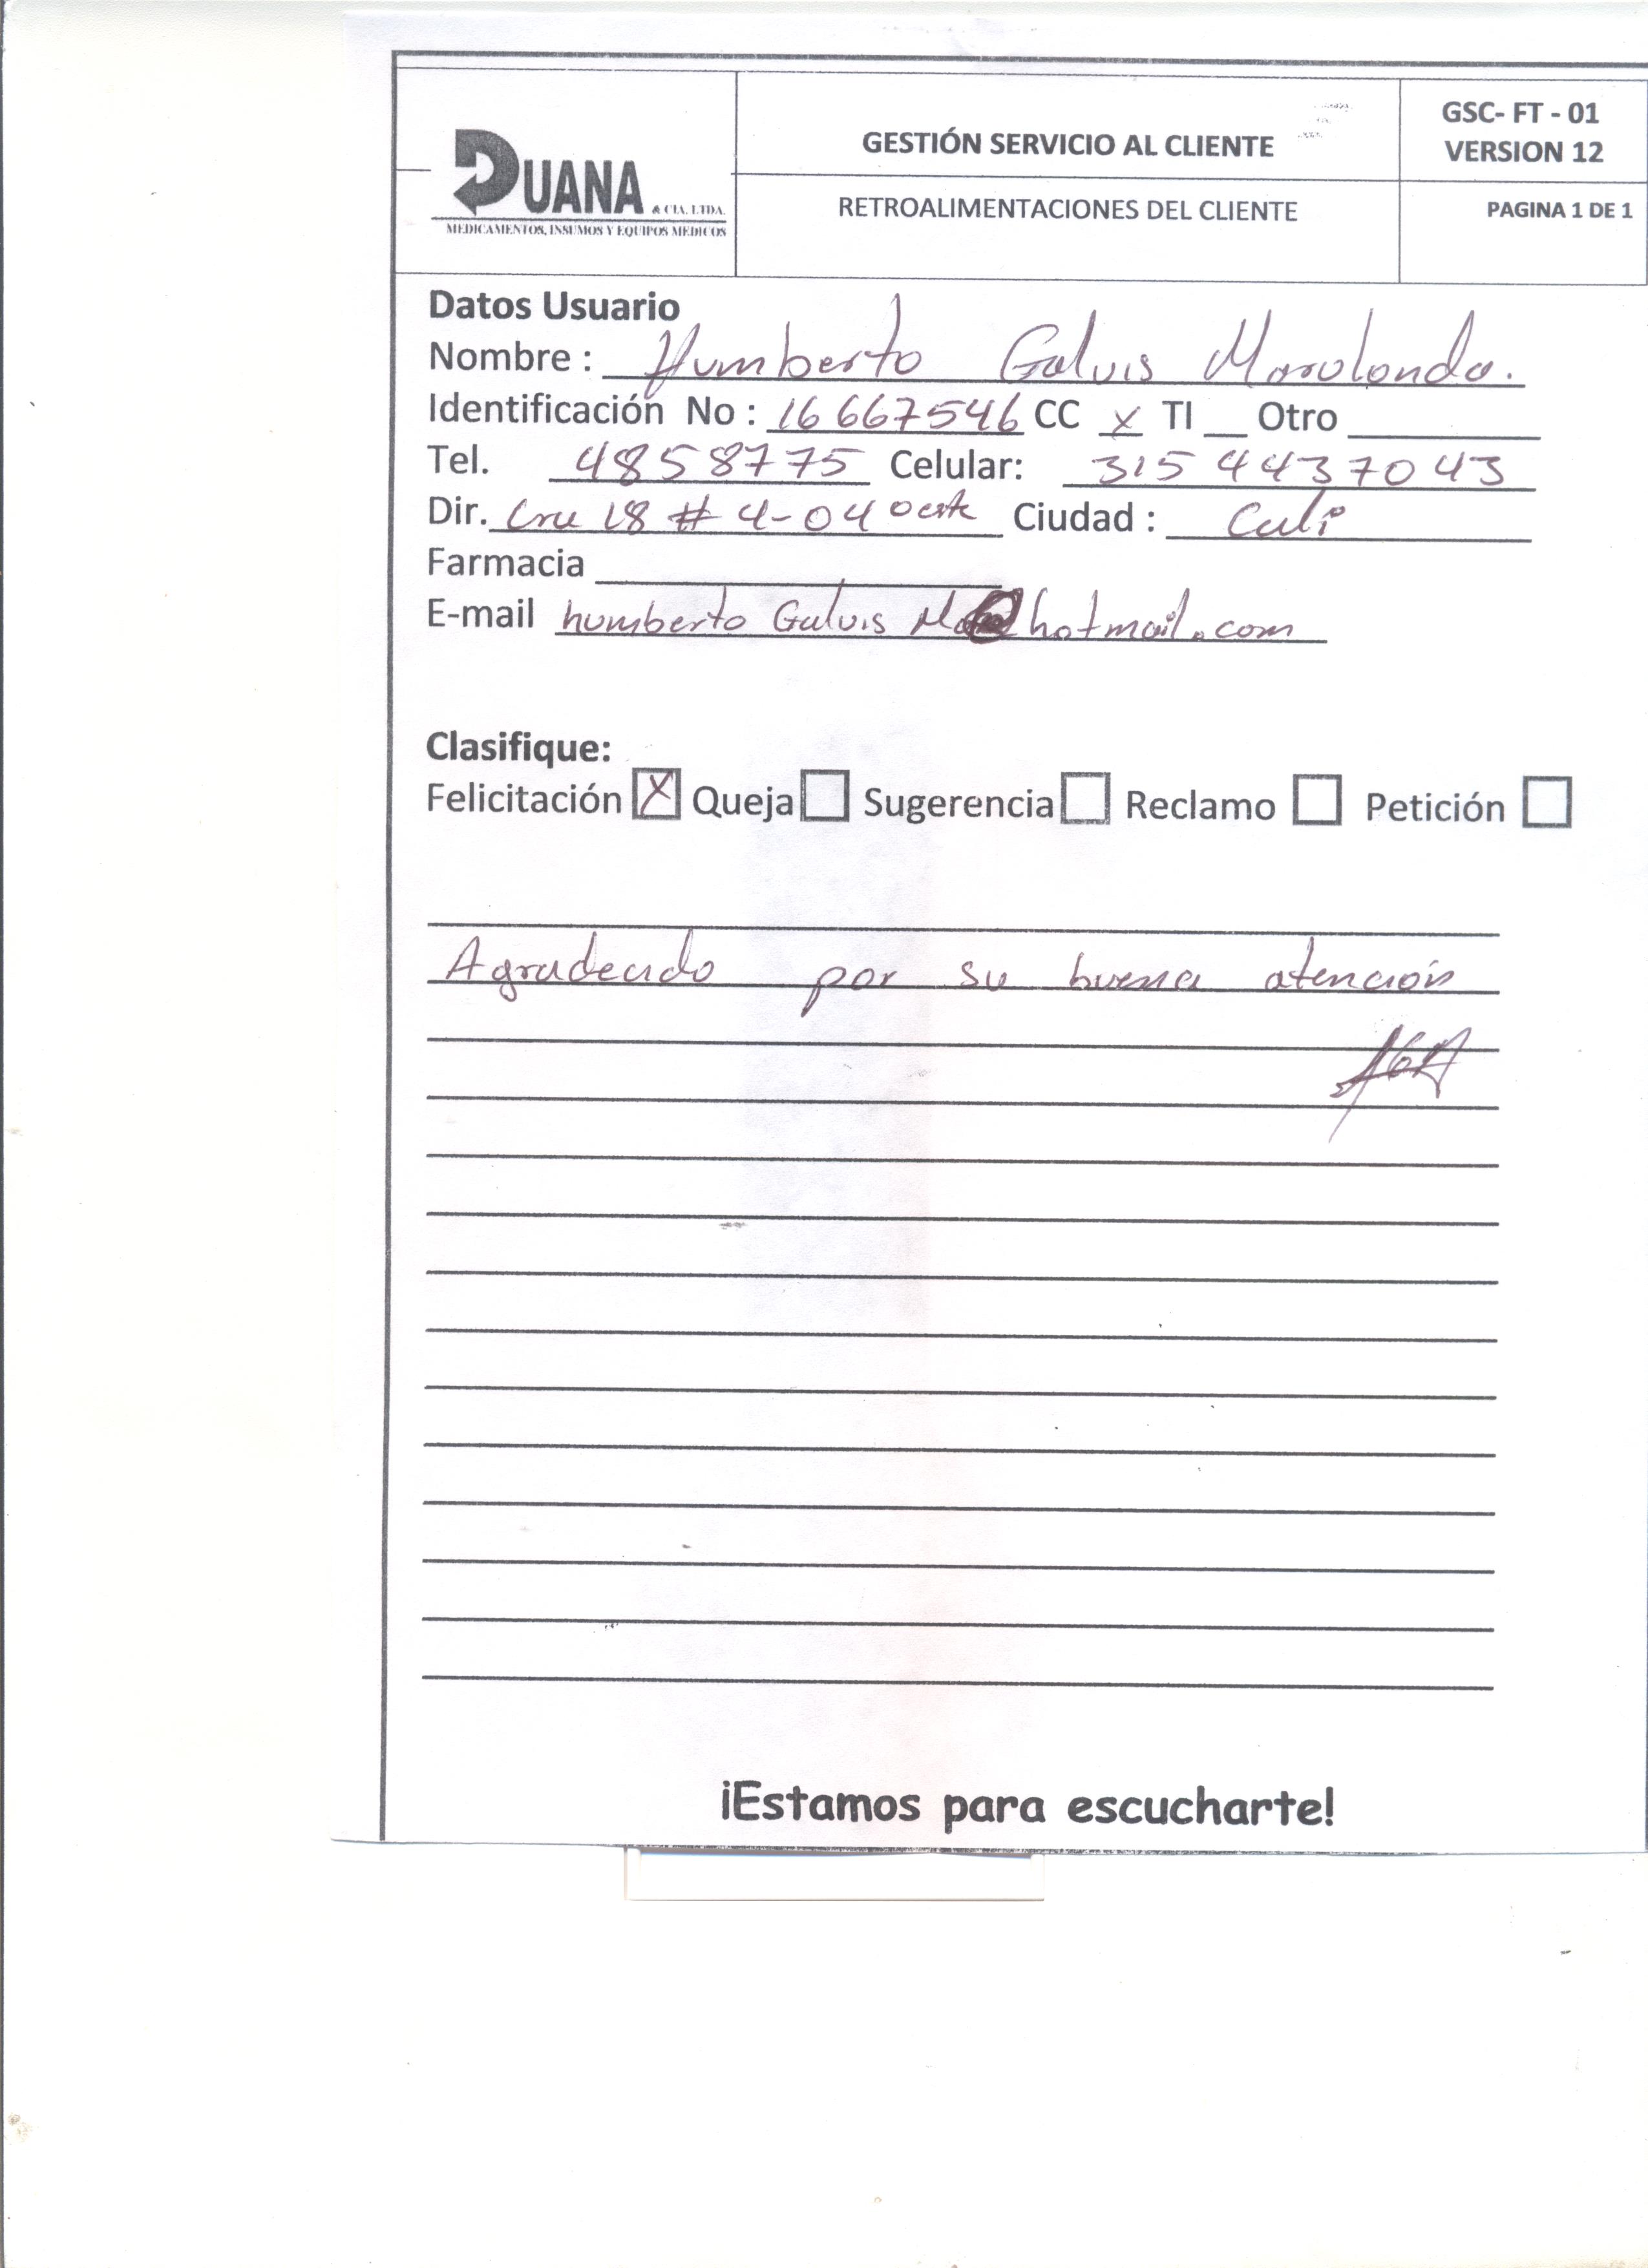 DUANA & CIA. LTDA.
MEDICAMENTOS, INSUMOS Y EQUIPOS MEDICOS
GESTIÓN SERVICIO AL CLIENTE
RETROALIMENTACIONES DEL CLIENTE
GSC- FT - 01
VERSION 12
PAGINA 1 DE 1
Datos Usuario
Nombre : Humberto Galvis Marolonda.
Identificación No : 16 667546 CC x TI __ Otro
Tel. 4858775 Celular: 315 4437043
Dir. Cra 18 # 4-04 Oeste Ciudad : Cali
Farmacia
E-mail humberto Galvis M@hotmail.com
Clasifique:
Felicitación X Queja Sugerencia Reclamo Petición
Agradecido por su buena atención
¡Estamos para escucharte!